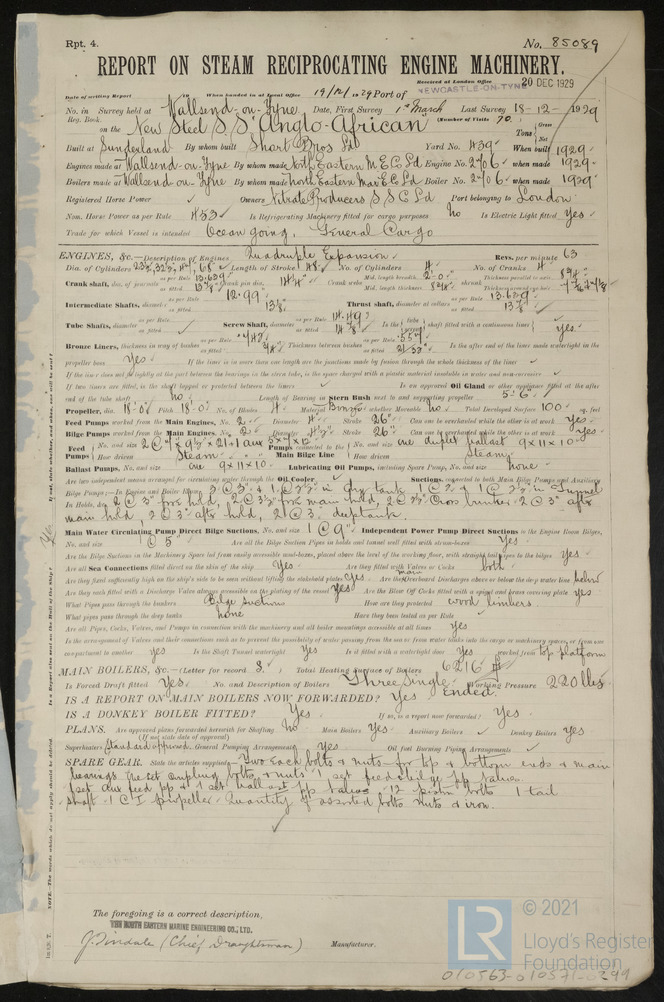 Rpt. 4. No. 85089
REPORT ON STEAM RECIPROCATING ENGINE MACHINERY.
Received at London Office 20 DEC 1929
Date of writing Report 19 When handed in at Local Office 19/12/1929 Port of NEWCASTLE-ON-TYNE
No. in Reg. Book. Survey held at Wallsend-on-Tyne Date, First Survey 1st March Last Survey 18-12-1929
(Number of Visits 70.)
on the New Steel S.S. Anglo-African Tons Gross Net
Built at Sunderland By whom built Short Bros Ld Yard No. 439 When built 1929
Engines made at Wallsend-on-Tyne By whom made North Eastern M.E. Co Ld Engine No. 2706 when made 1929
Boilers made at Wallsend-on-Tyne By whom made North Eastern Mar. E. Co Ld Boiler No. 2706 when made 1929
Registered Horse Power Owners Nitrate Producers S S C Ld Port belonging to London
Nom. Horse Power as per Rule 453 Is Refrigerating Machinery fitted for cargo purposes No Is Electric Light fitted Yes
Trade for which Vessel is intended Ocean going. General Cargo
ENGINES, &c.—Description of Engines Quadruple Expansion Revs. per minute 63
Dia. of Cylinders Length of Stroke 48 No. of Cylinders 4 No. of Cranks 4
Crank shaft, dia. of journals as per Rule 13.639 as fitted 13 7/8 Crank pin dia. 14 1/4 Crank webs Mid. length breadth 2-0 Mid. length thickness 8 3/4 shrunk Thickness parallel to axis 8 3/4 Thickness around eye-hole
Intermediate Shafts, diameter as per Rule 12.99 as fitted 13 1/8 Thrust shaft, diameter at collars as per Rule 13.639 as fitted 13 7/8
Tube Shafts, diameter as per Rule as fitted Screw Shaft, diameter as per Rule 14.49 as fitted 14 7/8 Is the tube screw shaft fitted with a continuous liner Yes
Bronze Liners, thickness in way of bushes as per Rule as fitted Thickness between bushes as per Rule as fitted Is the after end of the liner made watertight in the
propeller boss Yes If the liner is in more than one length are the junctions made by fusion through the whole thickness of the liner
If the liner does not fit tightly at the part between the bearings in the stern tube, is the space charged with a plastic material insoluble in water and non-corrosive
If two liners are fitted, is the shaft lapped or protected between the liners Is an approved Oil Gland or other appliance fitted at the after
end of the tube shaft no Length of Bearing in Stern Bush next to and supporting propeller 5-6
Propeller, dia. 18-0 Pitch 18-0 No. of Blades 4 Material Bronze whether Moveable no Total Developed Surface 100 sq. feet
Feed Pumps worked from the Main Engines, No. 2 Diameter 4 Stroke 26 Can one be overhauled while the other is at work Yes
Bilge Pumps worked from the Main Engines, No. 2 Diameter 4 1/2 Stroke 26 Can one be overhauled while the other is at work Yes
Feed Pumps No. and size 2 @ 7 x 9 1/2 x 21 + 1 aux 5 x 7 x 12 How driven Steam Pumps connected to the Main Bilge Line No. and size one duplex ballast 9 x 11 x 10 How driven Steam
Ballast Pumps, No. and size one 9 x 11 x 10 Lubricating Oil Pumps, including Spare Pump, No. and size none
Are two independent means arranged for circulating water through the Oil Cooler Suctions, connected to both Main Bilge Pumps and Auxiliary
Bilge Pumps;—In Engine and Boiler Room 1 @ 2 1/2 in Tunnel
In Holds, &c. 2 @ 3 fore hold, 2 @ 3 1/2 fore main hold 2 @ 2 1/2 Cross bunker, 2 @ 3 aft
main hold, 2 @ 3 aft hold, 2 @ 3 deeptank.
Main Water Circulating Pump Direct Bilge Suctions, No. and size 1 @ 9 Independent Power Pump Direct Suctions to the Engine Room Bilges,
No. and size 1 @ 5 Are all the Bilge Suction Pipes in holds and tunnel well fitted with strum-boxes Yes
Are the Bilge Suctions in the Machinery Space led from easily accessible mud-boxes, placed above the level of the working floor, with straight tail pipes to the bilges Yes
Are all Sea Connections fitted direct on the skin of the ship Yes Are they fitted with Valves or Cocks both
Are they fixed sufficiently high on the ship's side to be seen without lifting the stokehold plates Yes Are the Overboard Discharges above or below the deep water line main below
Are they each fitted with a Discharge Valve always accessible on the plating of the vessel Yes Are the Blow Off Cocks fitted with a spigot and brass covering plate Yes
What Pipes pass through the bunkers Bilge Suctions How are they protected wood limbers.
What pipes pass through the deep tanks none Have they been tested as per Rule
Are all Pipes, Cocks, Valves, and Pumps in connection with the machinery and all boiler mountings accessible at all times Yes
Is the arrangement of Valves and their connections such as to prevent the possibility of water passing from the sea or from water tanks into the cargo or machinery spaces, or from one
compartment to another Yes Is the Shaft Tunnel watertight Yes Is it fitted with a watertight door Yes worked from top platform
MAIN BOILERS, &c.—(Letter for record S.) Total Heating Surface of Boilers 6216
Is Forced Draft fitted Yes No. and Description of Boilers Three Single Ended Working Pressure 220 lbs
IS A REPORT ON MAIN BOILERS NOW FORWARDED? Yes
IS A DONKEY BOILER FITTED? Yes If so, is a report now forwarded? Yes
PLANS. Are approved plans forwarded herewith for Shafting No Main Boilers Yes Auxiliary Boilers Donkey Boilers Yes
(If not state date of approval)
Superheaters Standard approved General Pumping Arrangements Yes Oil fuel Burning Piping Arrangements
SPARE GEAR. State the articles supplied:—Two each bolts & nuts for top & bottom ends & main
bearings one set coupling bolts & nuts 1 set feed & bilge pp valves
1 set aux feed pp & 1 set ballast pp valves 12 piston bolts 1 tail
shaft 1 C I propeller Quantity of assorted bolts nuts & iron.
The foregoing is a correct description,
THE NORTH EASTERN MARINE ENGINEERING CO., LTD.
(Chief Draughtsman) Manufacturer.
NOTE.—The words which do not apply should be deleted.
Is a Report also sent on the Hull of the Ship? Yes
© 2021
LR
Lloyd's Register
Foundation